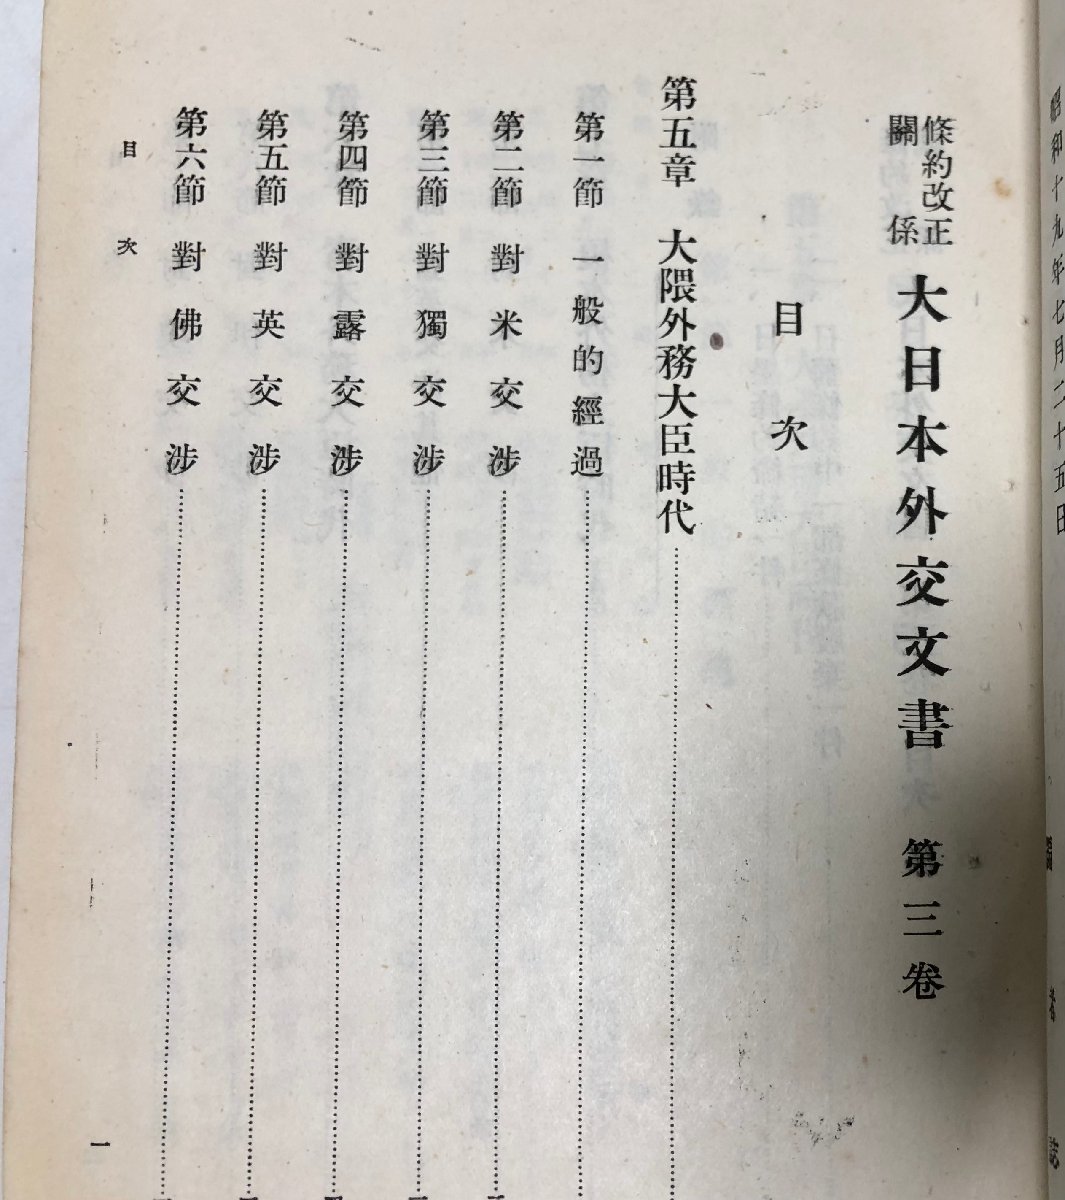 昭和十九年七月二十五日
編者誌
條約改正
關係
大日本外交文書 第三卷
目次
第五章 大隈外務大臣時代
第一節 一般的經過
第二節 對米交涉
第三節 對獨交涉
第四節 對露交涉
第五節 對英交涉
第六節 對佛交涉
目次
一